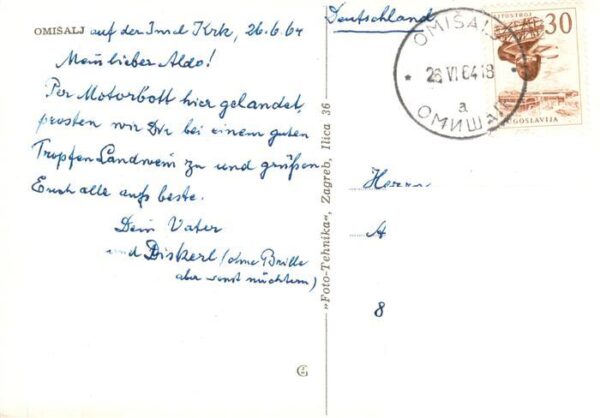 OMIŠALJ auf der Insel Krk, 26.6.64
Mein lieber Aldo!
Per Motorbott hier gelandet,
prosten wir Dir bei einem guten
Tropfen Landwein zu und grüßen
Euch alle aufs beste.
Dein Vater
und Diskerl (ohne Brille
aber sonst nüchtern)
G
»Foto-Tehnika«, Zagreb, Ilica 36
Deutschland
OMIŠALJ
26 VI 64 18
a
ОМИШАЉ
30
JUGOSLAVIJA
Herrn
A
8